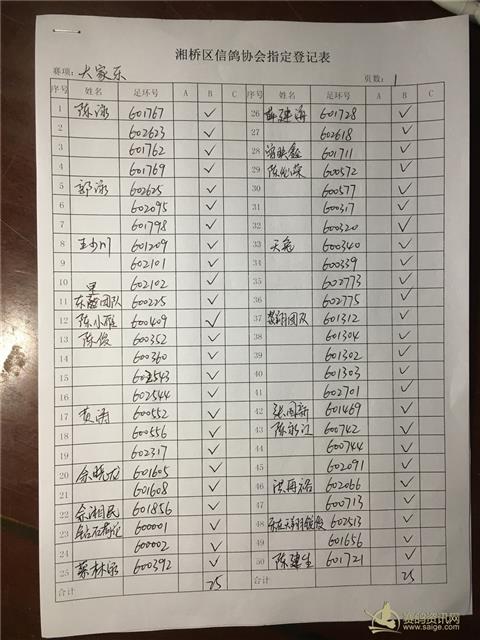 湘桥区信鸽协会指定登记表
赛项：大家乐
页数：1
序号 姓名 足环号 A B C 序号 姓名 足环号 A B C
1 陈 601767 ✓ 26 601728 ✓
2 602623 ✓ 27 602618 ✓
3 601762 ✓ 28 601711 ✓
4 601769 ✓ 29 陈 600572 ✓
5 郭 602625 ✓ 30 600577 ✓
6 602095 ✓ 31 600317 ✓
7 601798 ✓ 32 600320 ✓
8 王少川 601209 ✓ 33 天 600340 ✓
9 602101 ✓ 34 600339 ✓
10 602102 ✓ 35 602773 ✓
11 东 团队 600225 ✓ 36 602775 ✓
12 陈小雁 600409 ✓ 37 翔团队 601312 ✓
13 陈俊 600352 ✓ 38 601304 ✓
14 600360 ✓ 39 601302 ✓
15 602543 ✓ 40 601303 ✓
16 602544 ✓ 41 602701 ✓
17 黄涛 600552 ✓ 42 张国新 601469 ✓
18 600556 ✓ 43 陈永江 600742 ✓
19 602317 ✓ 44 600744 ✓
20 余晓龙 601605 ✓ 45 602091 ✓
21 601608 ✓ 46 洪再裕 602066 ✓
22 余湘民 601856 ✓ 47 600713 ✓
23 钻石 600001 ✓ 48 602513 ✓
24 600002 ✓ 49 601656 ✓
25 蔡林 600392 ✓ 50 陈建生 601721 ✓
合计 25 合计 25
赛鸽资讯网
www.saige.com